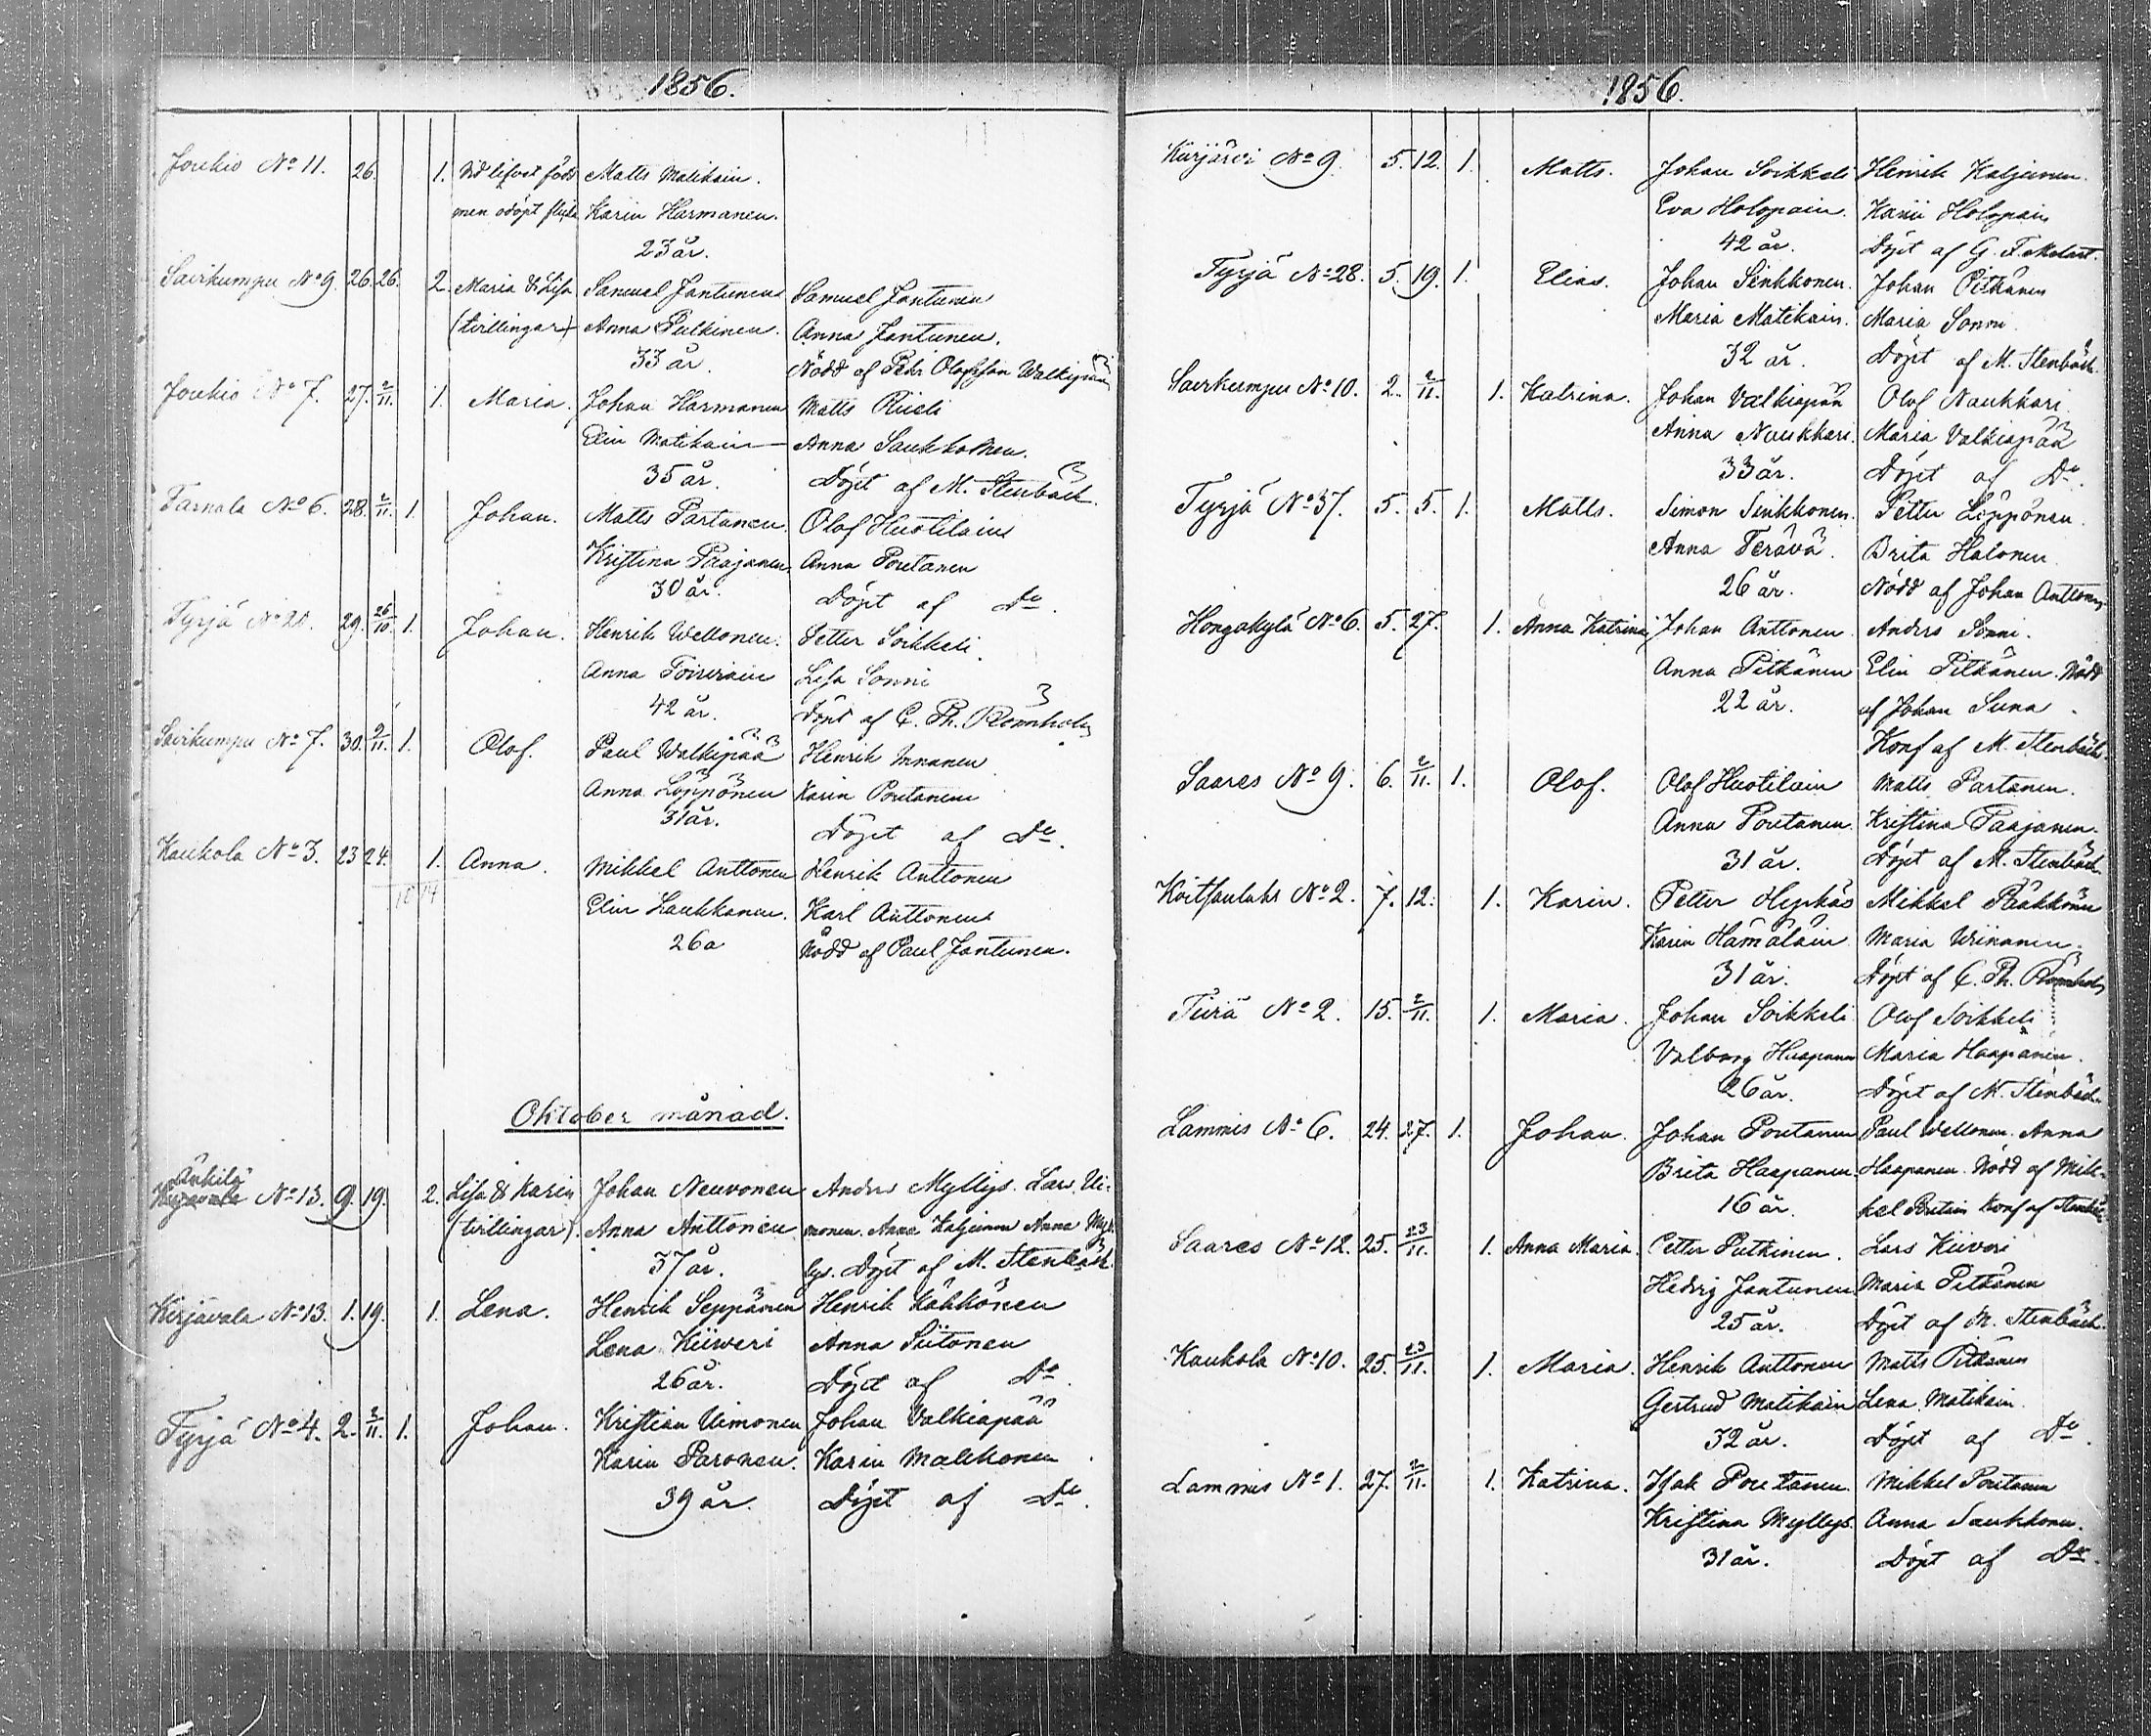 1856.
Joukio No 11. 26. 1. Vid lifvet född Matts Matikain.
men odöpt Karin Harmanen.
23 år.
Sairkumpu No 9. 26. 26. 2. Maria & Lisa Samuel Jantunen Samuel Jantunen
(tvillingar) Anna Pulkinen. Anna Jantunen.
33 år. Nödd af Pehr Olofsson Walkipää
Joukio No 7. 27. 2/11. 1. Maria. Johan Harmanen Matts Rusti
Elin Matikain Anna Saukkonen.
35 år. Döpt af M. Stenbäck.
Tarnala No 6. 28. 2/11. 1. Johan. Matts Partanen Olof Huotilain
Kristina Paajanen. Anna Poutanen
30 år. Döpt af Do.
Tyrjä No 20. 29. 26/10. 1. Johan. Henrik Wellonen. Petter Soikkeli.
Anna Toiviain Lisa Sonni
42 år. Döpt af C. Th. Blomholm
Sairkumpu No 7. 30. 2/11. 1. Olof. Paul Walkipää Henrik Innanen
Anna Löppönen Karin Poutanen
31 år. Döpt af Do.
Kaukola No 3. 23 24. 1. Anna. Mikkel Anttonen Henrik Anttonen
Elin Laukkanen. Karl Anttonen
26 a Nödd af Paul Jantunen.
Oktober månad.
Änkilä
No 13. 9. 19. 2. Lisa & Karin Johan Neuvonen Anders Myllys. Lars Ui-
(tvillingar). Anna Anttonen monen. Anna Kaljunen Anna Myl-
37 år. lys. Döpt af M. Stenbäck.
Kirjavala No 13. 1. 19. 1. Lena. Henrik Seppänen Henrik Kähkönen
Lena Kiiveri Anna Siitonen
26 år. Döpt af Do.
Tyrjä No 4. 2. 2/11. 1. Johan. Kristian Uimonen Johan Valkiapää
Karin Paronen. Karin Malikonen
39 år. Döpt af Do.
1856.
Kurjärvi No 9. 5. 12. 1. Matts. Johan Soikkeli Henrik Kaljunen.
Eva Holopain. Karin Holopain
42 år. Döpt af G. F. Melart.
Tyrjä No 28. 5. 19. 1. Elias. Johan Sinkkonen. Johan Pitkänen
Maria Matikain. Maria Sonni.
32 år. Döpt af M. Stenbäck.
Sairkumpu No 10. 2. 2/11. 1. Katrina. Johan Valkiapää Olof Naukkari
Anna Naukkari. Maria Valkiapää
33 år. Döpt af Do.
Tyrjä No 37. 5. 5. 1. Matts. Simon Sinkkonen. Petter Löppönen.
Anna Terävä. Brita Halonen.
26 år. Nödd af Johan Anttonen
Hongakylä No 6. 5. 27. 1. Anna Katrina Johan Anttonen Anders Sonni.
Anna Pitkänen Elin Pitkänen. Nödd
22 år. af Johan Suna.
Konf af M. Stenbäck.
Saares No 9. 6. 2/11. 1. Olof. Olof Huotilain Matts Partanen.
Anna Poutanen Kristina Paajanen.
31 år. Döpt af M. Stenbäck
Koitsanlahs No 2. 7. 12. 1. Karin. Petter Hypkäs Mikkel Pääkkönen
Karin Hämäläin Maria Wiinanen.
31 år. Döpt af C. Th. Blomholm
Tiirä No 2. 15. 2/11. 1. Maria. Johan Soikkeli Olof Soikkeli
Valborg Haapanen Maria Haapanen.
26 år. Döpt af M. Stenbäck.
Lammis No 6. 24. 27. 1. Johan. Johan Poutanen Paul Wellonen. Anna
Brita Haapanen. Haapanen. Nödd af Mik-
16 år. kel Konf af Stenbäck
Saares No 12. 25. 23/11. 1. Anna Maria. Petter Putkinen. Lars Kiiveri
Hedvig Jantunen Maria Pitkänen
25 år. Döpt af M. Stenbäck.
Kaukola No 10. 25. 23/11. 1. Maria. Henrik Anttonen Matts Pitkänen
Gertrud Matikain Lena Matikain.
32 år. Döpt af Do.
Lammis No 1. 27. 2/11. 1. Katrina. Isak Poutanen. Mikkel Poutanen
Kristina Myllys. Anna Saukkonen.
31 år. Döpt af Do.